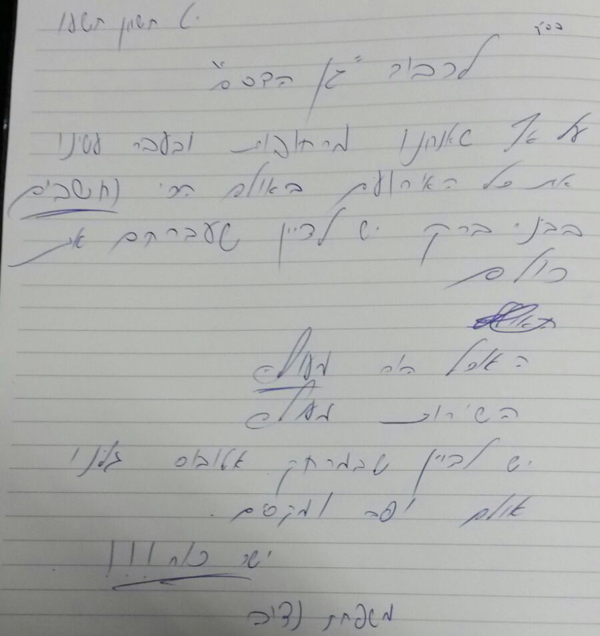 בס"ד
י' חשון תשע"ו
לכבוד "גן הדסים"
על אף שאנחנו מרחובות ובעבר עשינו
את כל האירועים באולם הכי נחשבים
בבני ברק יש לציין שעברתם את
כולם
האוכל היה מעולה
השירות מעולה
יש לציין שבמרחק אוטובוס גילינו
אולם יפה ומקסים.
יישר כח!!!
משפחת נדיב